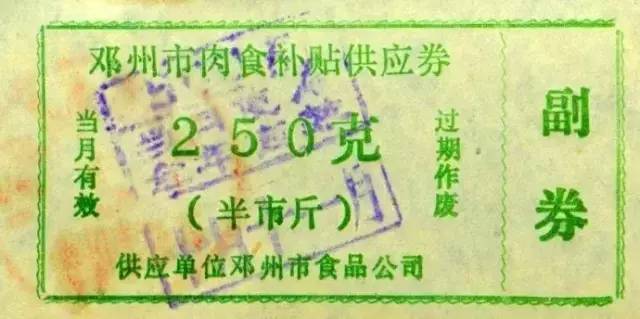 邓州市肉食补贴供应券
当月有效
250克
(半市斤)
过期作废
供应单位邓州市食品公司
副券